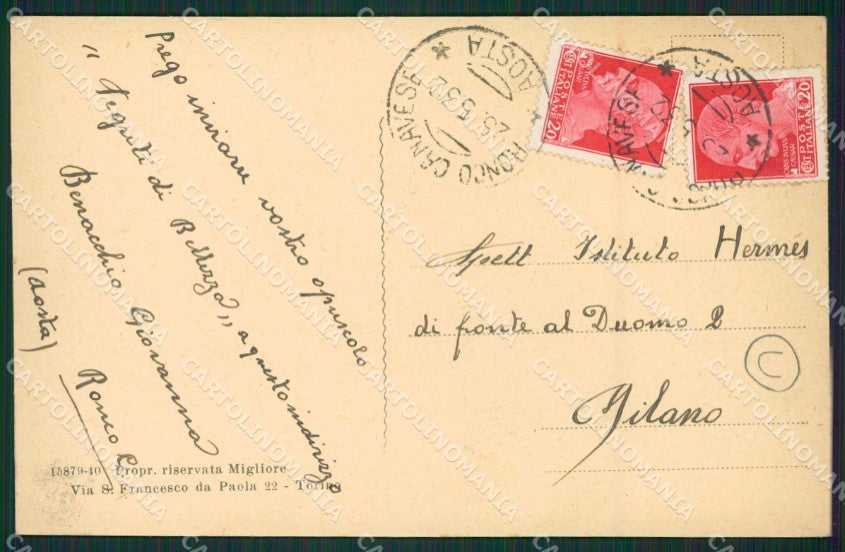 Prego inviare vostro opuscolo
" Segreti di Bellezza " a questo indirizzo
Benacchio Giovanna
Ronco C.
(Aosta)
15879-40 Propr. riservata Migliore
Via S. Francesco da Paola 22 - Torino
RONCO CANAVESE * AOSTA *
25.5.32
POSTE ITALIANE
20
POSTE ITALIANE
20
Spett Istituto Hermes
di fronte al Duomo 2
Milano
U
CARTOLINOMANIA